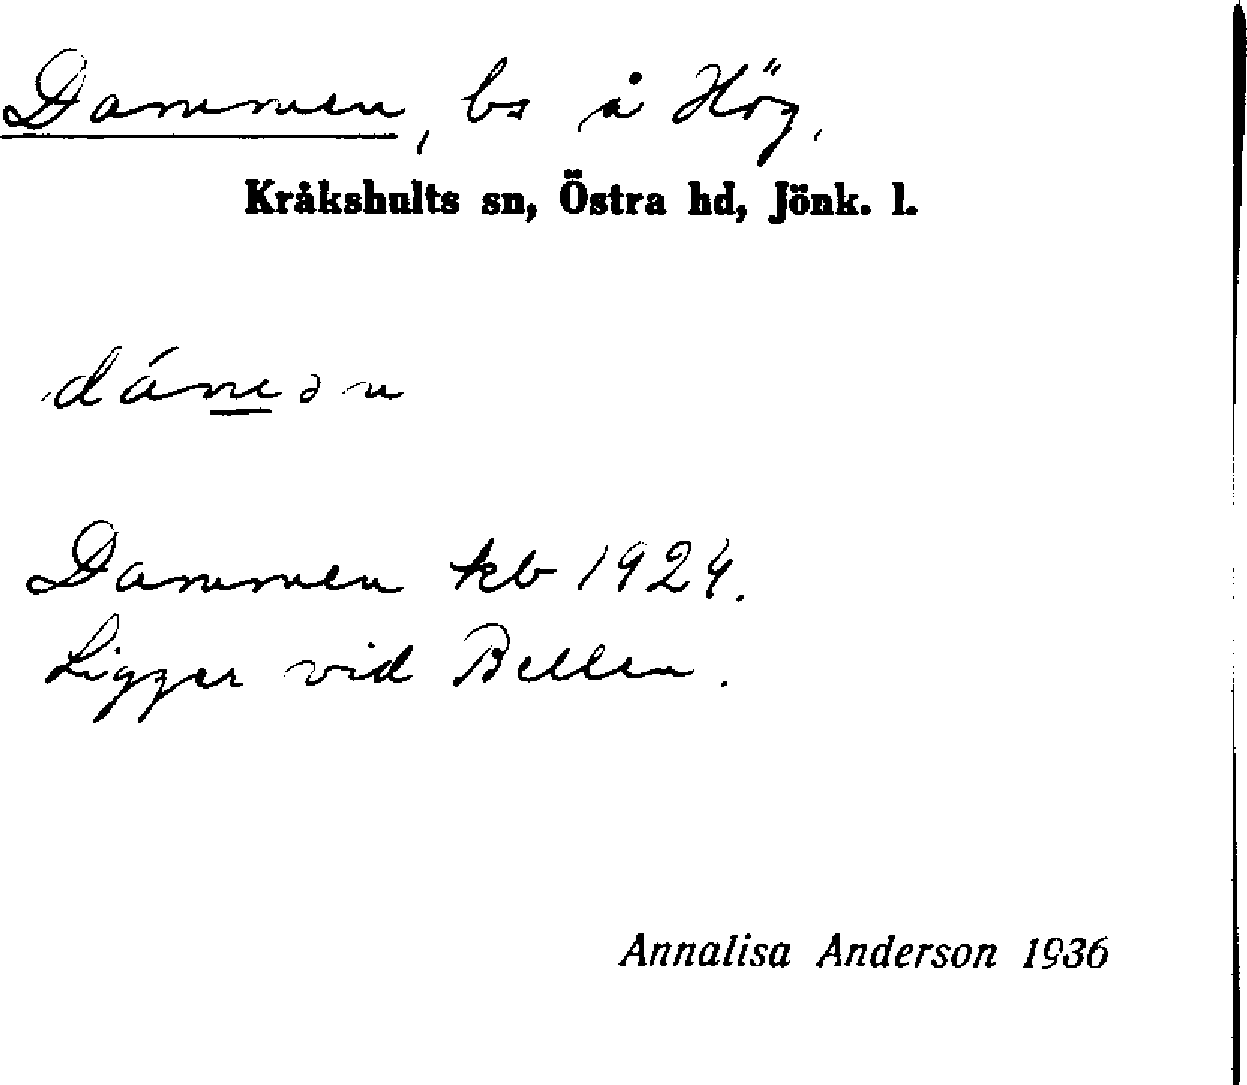 Dammen, bs å Hög,
Kråkshults sn, Östra hd, Jönk. l.
dámən
Dammen kb 1924.
Ligger vid Bellen.
Annalisa Anderson 1936